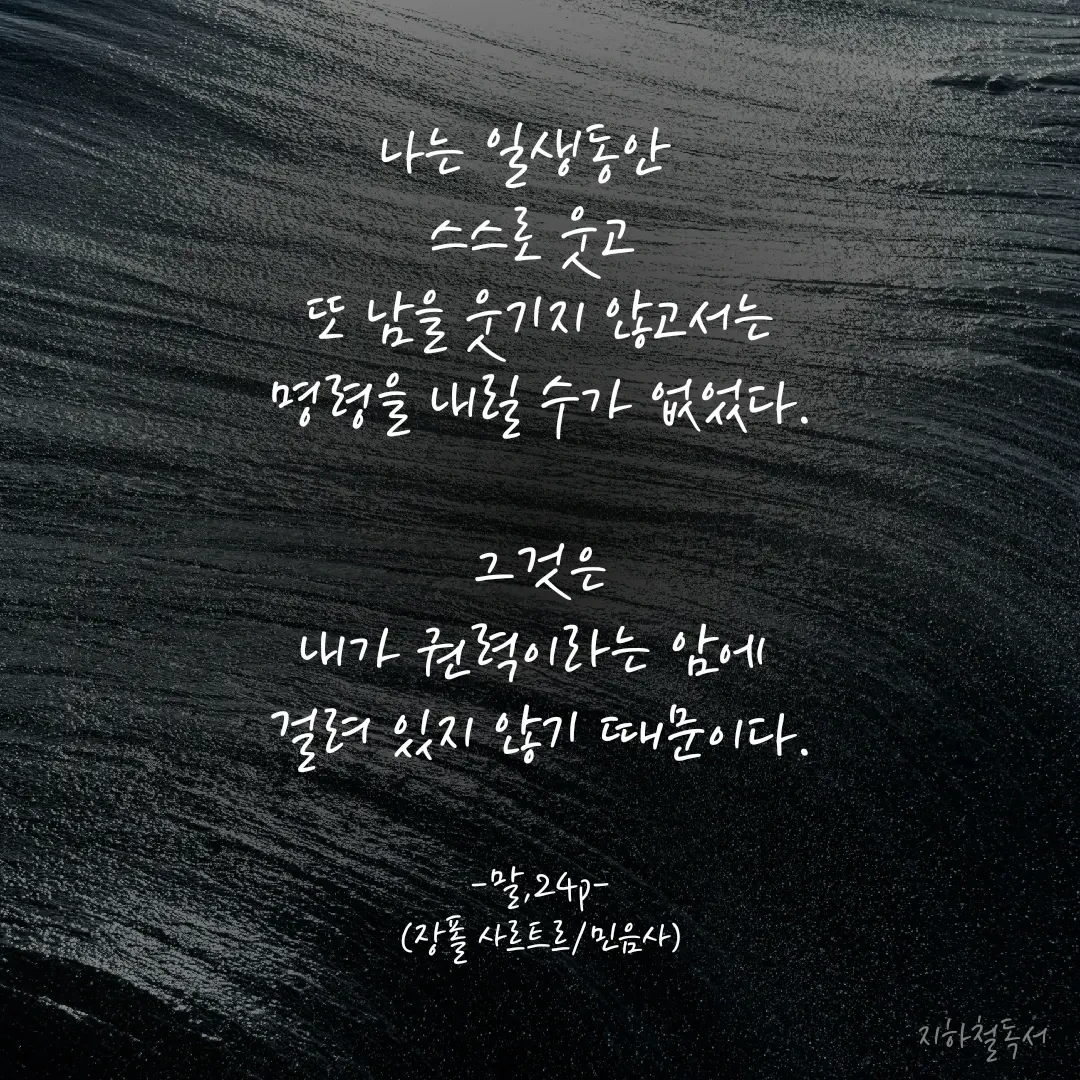 나는 일생동안
스스로 웃고
또 남을 웃기지 않고서는
명령을 내릴 수가 없었다.
그것은
내가 권력이라는 암에
걸려 있지 않기 때문이다.
-말,24p-
(장폴 사르트르/민음사)
지하철독서